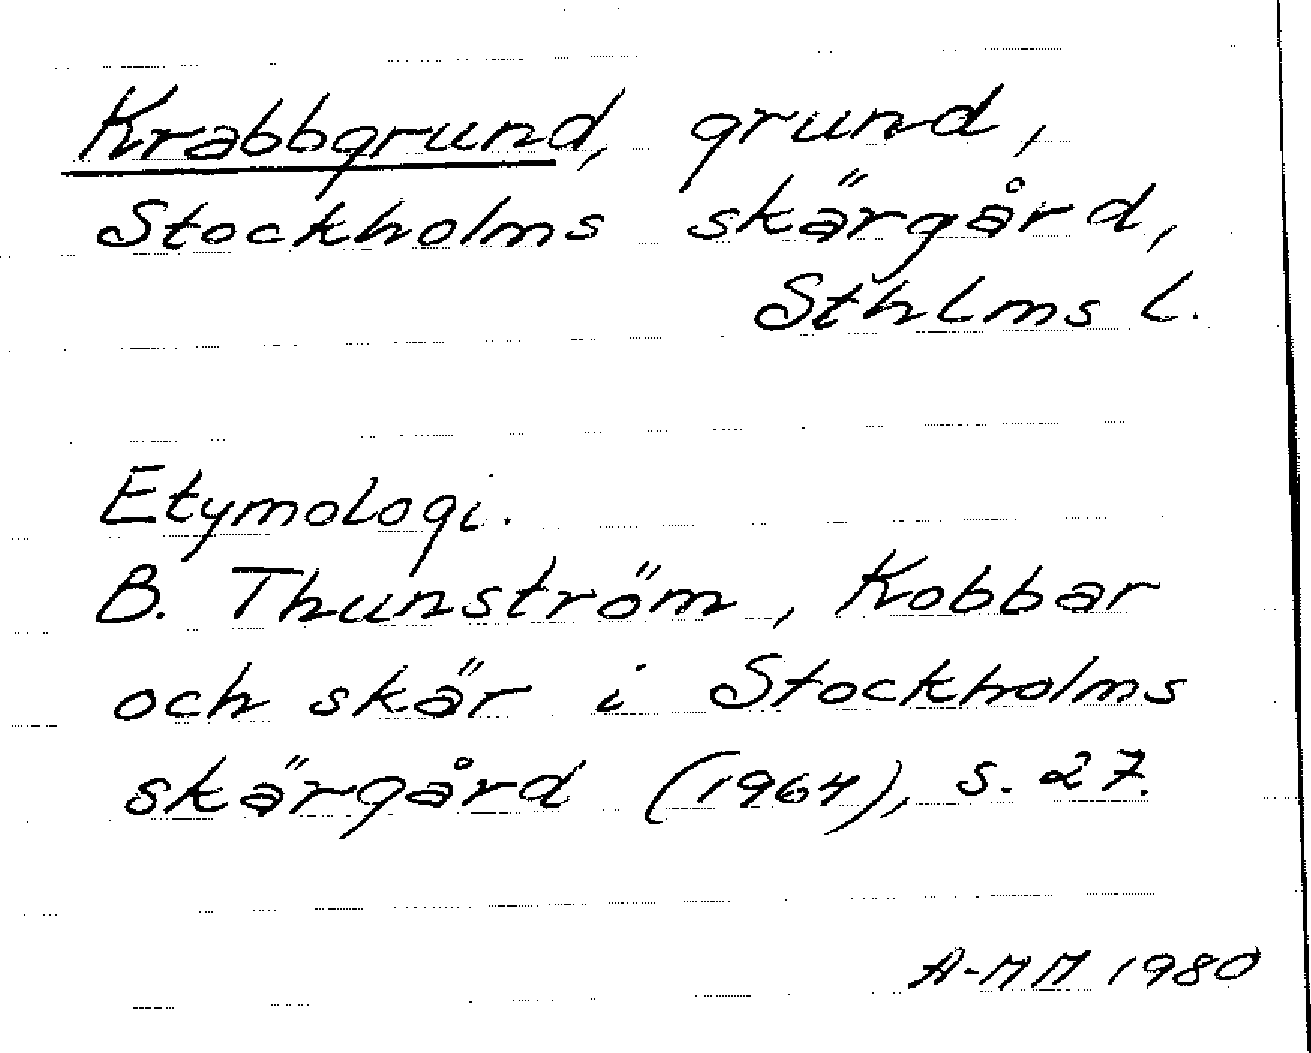 Krabbgrund, grund,
Stockholms skärgård,
Sthlms l.
Etymologi.
B. Thunström, Kobbar
och skär i Stockholms
skärgård (1964), s. 27.
A-MM 1980